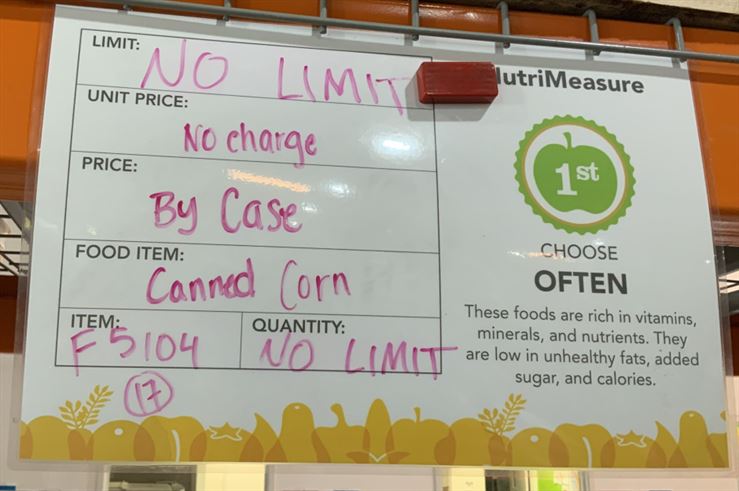 LIMIT:
NO LIMIT
UNIT PRICE:
No charge
PRICE:
By Case
FOOD ITEM:
Canned Corn
ITEM:
F5104
17
QUANTITY:
NO LIMIT
utriMeasure
1st
CHOOSE
OFTEN
These foods are rich in vitamins,
minerals, and nutrients. They
are low in unhealthy fats, added
sugar, and calories.